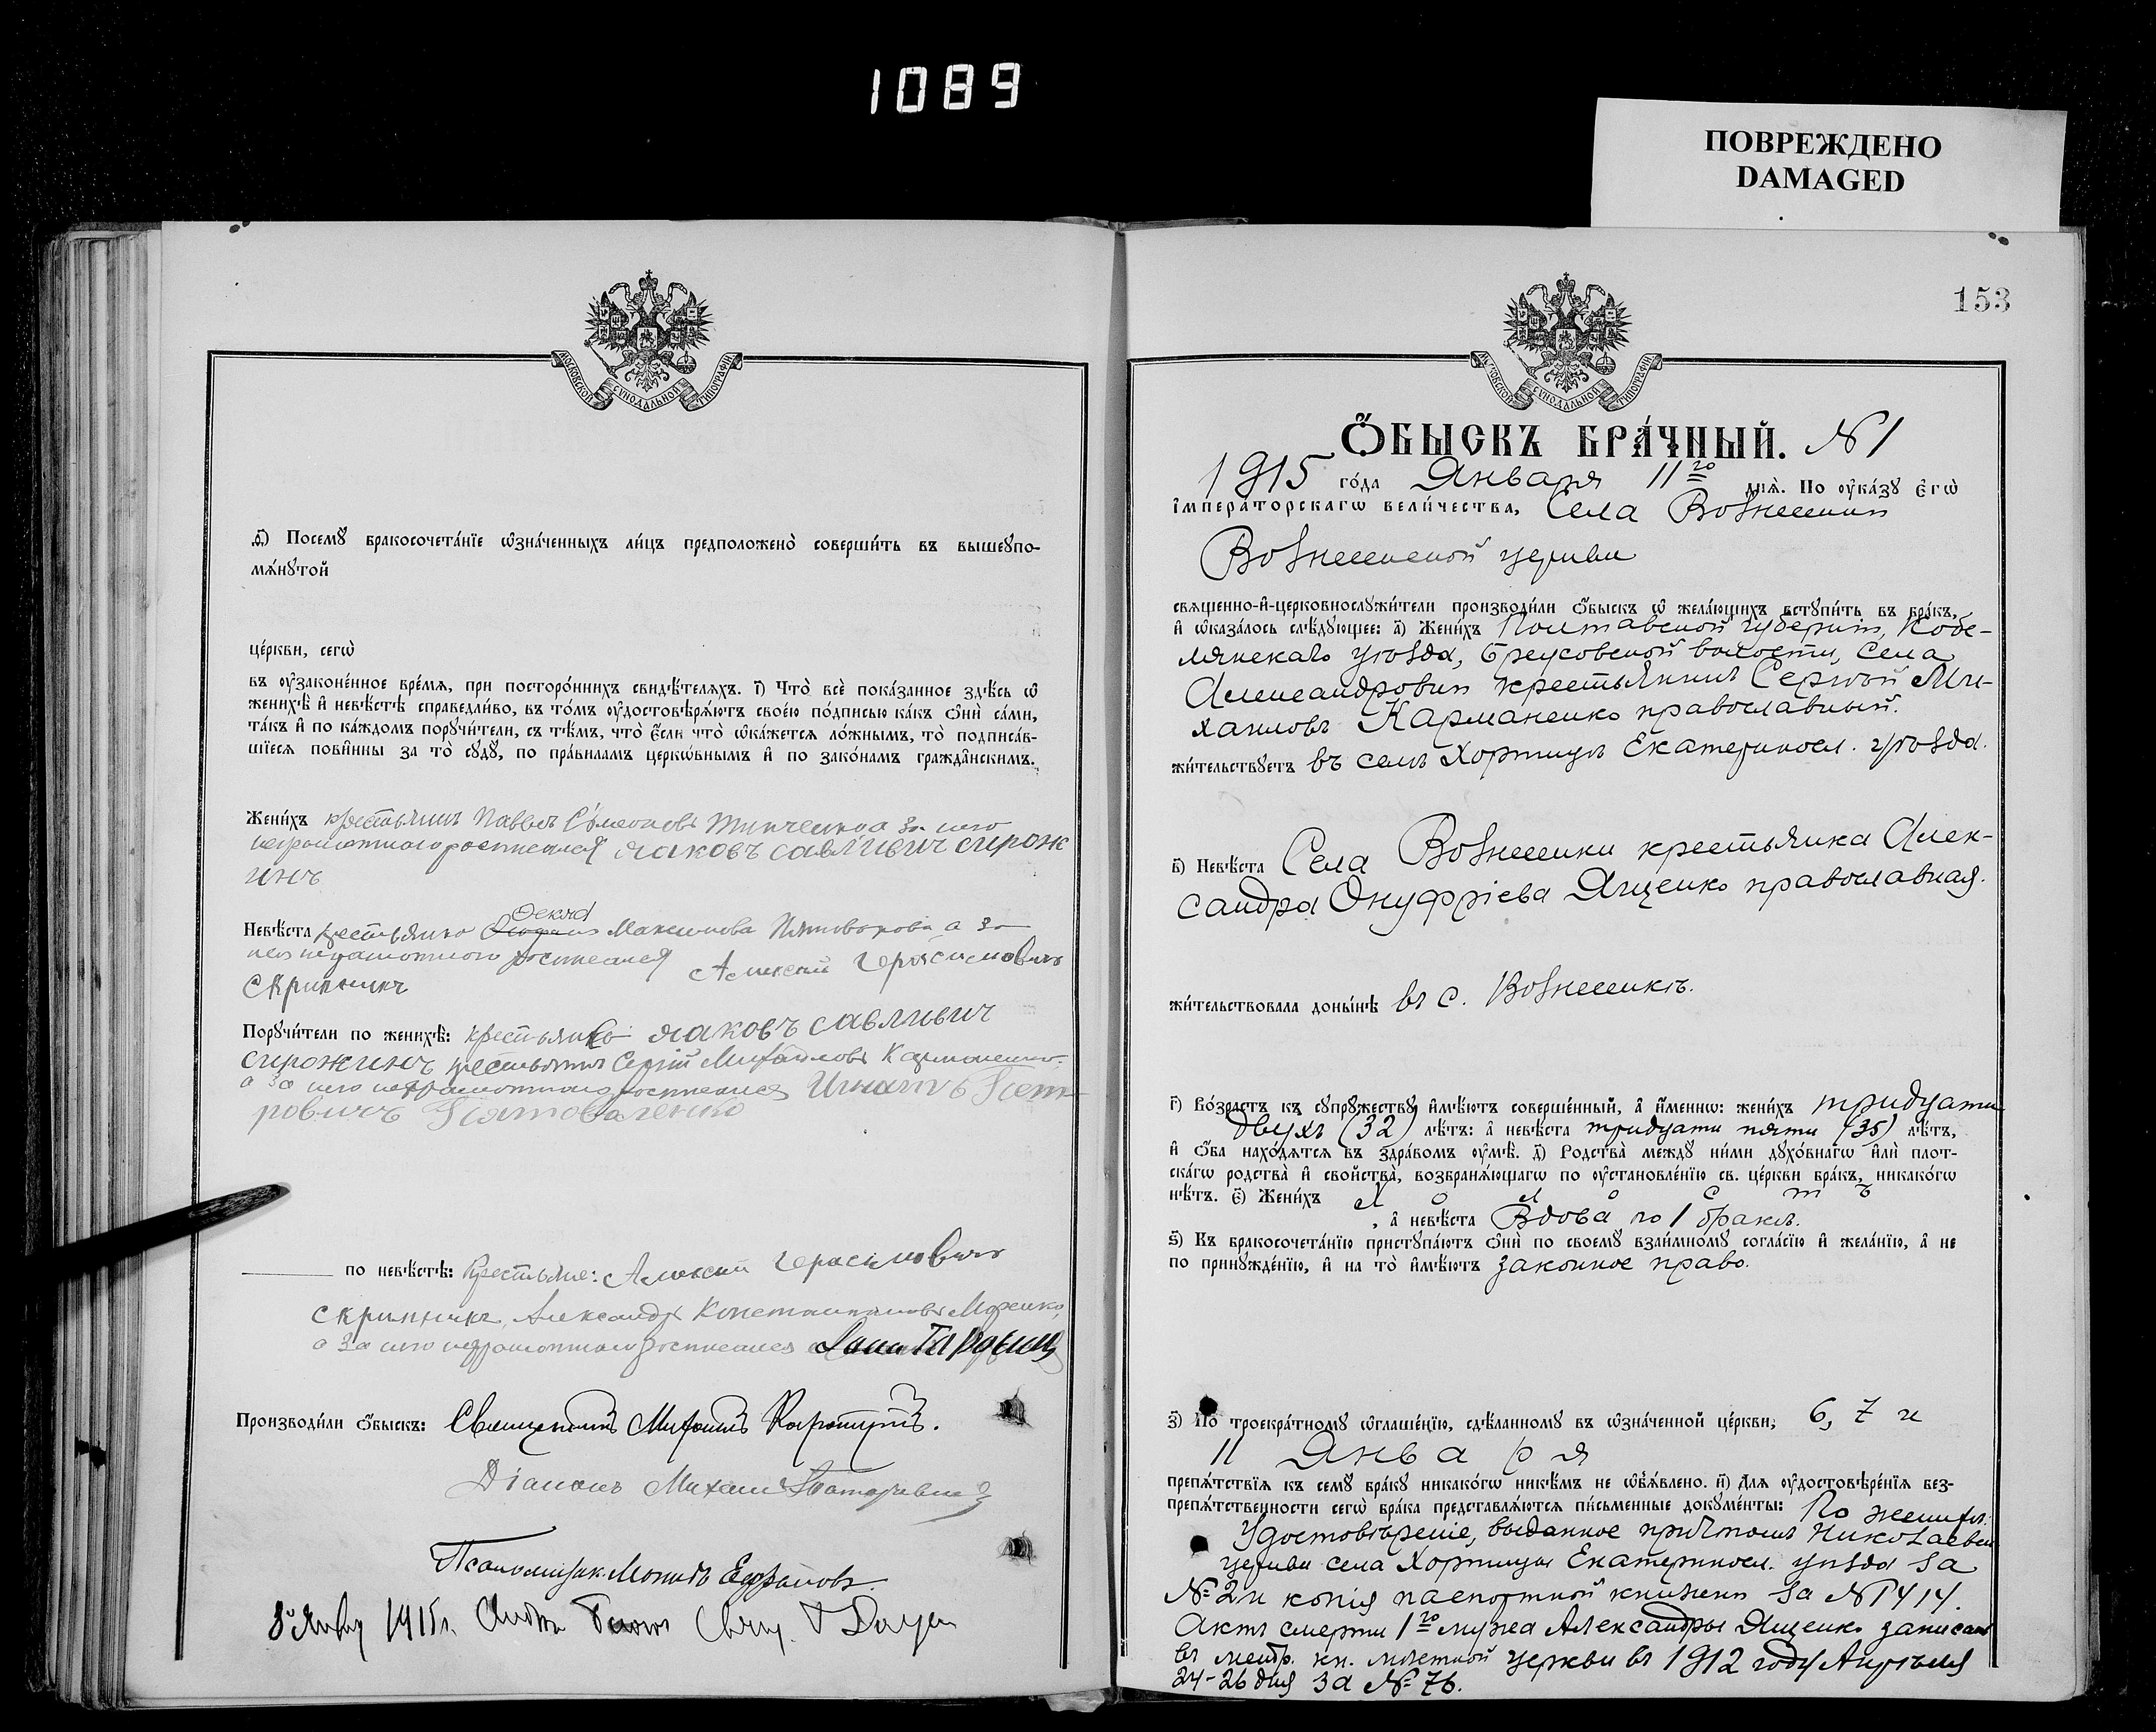 1089
ПОВРЕЖДЕНО
DAMAGED
МОСКОВСКОЙ СУНОДАЛЬНОЙ ТИПОГРАФІИ
ѳ҃) Посемꙋ̀ бракосочета́нїе ѡ҆зна́ченныхъ ли́цъ предположено̀ соверши́ть въ вышеꙋпо-
мѧ́нꙋтой
це́ркви, сегѡ̀
въ ᲂу҆законе́нное вре́мѧ, при посторо́ннихъ свидѣ́телѧхъ. і҃) Что̀ всѐ пока́занное здѣ́сь ѡ҆
женихѣ̀ и҆ невѣ́стѣ справедли́во, въ то́мъ ᲂу҆достовѣрѧ́ютъ свое́ю по́дписью ка́къ ѻ҆нѝ са́ми,
та́къ и҆ по ка́ждомъ порꙋчи́тели, съ тѣ́мъ, что̀ є҆́сли что̀ ѡ҆ка́жетсѧ ло́жнымъ, то̀ подписа́в-
шїесѧ пови́нны за то̀ сꙋдꙋ̀, по пра́виламъ церко́внымъ и҆ по зако́намъ гражда́нскимъ.
Жени́хъ крестьянинъ Павелъ Сѵмеоновъ а за него
неграмотнаго росписался Яковъ Савлѣвич сирож
инъ
Невѣ́ста крестьянка Ѳекла Максимова а за
нея неграмотную росписался Алексій Герасимовичъ
Скрипникъ
Порꙋчи́тели по женихѣ̀: крестьяне Яковъ Савлиевич
сирожинъ крестьянинъ Сергій Михаиловъ Карманенко
а за него неграмотнаго росписался Игнатъ Пет
ровичъ Пятоваленко
по невѣ́стѣ: Крестьяне: Алексій Герасимовичъ
Скрипникъ, Александръ Константиновъ
а за него неграмотнаго росписался
Производи́ли ѻ҆́быскъ: Священникъ Михаилъ
Діаконъ Михаилъ
Псаломщик.
8 Янв 1915 г.
153
МОСКОВСКОЙ СУНОДАЛЬНОЙ ТИПОГРАФІИ
Ѻ҆́БЫСКЪ БРА́ЧНЫЙ. № 1
1915 го́да Января 11го днѧ̀. По ᲂу҆ка́зꙋ є҆гѡ̀
і҆мпера́торскагѡ вели́чества, Села Вознесенки
Вознесенской церкви
свѧще́нно-и҆-церковнослꙋжи́тели производи́ли ѻ҆́быскъ ѡ҆ жела́ющихъ встꙋпи́ть въ бра́къ,
и҆ ѡ҆каза́лось слѣ́дꙋющее: а҃) Жени́хъ Полтавской губерніи, Кобе-
лякскаго уѣзда, Бреусовской волости, села
Александровки крестьянинъ Сергѣй Ми-
хаиловъ Карманенко православный.
жи́тельствꙋетъ въ селѣ Хортицѣ Екатериносл. уѣзда.
в҃) Невѣ́ста Села Вознесенки крестьянка Алек-
сандра Онуфріева Ященко православная.
жи́тельствовала доны́нѣ въ с. Вознесенкѣ.
г҃) Во́зрастъ къ сꙋпрꙋ́жествꙋ и҆мѣ́ютъ соверше́нный, а҆ и҆́меннѡ: жени́хъ тридцати
двухъ (32) лѣ́тъ: а҆ невѣ́ста тридцати пяти (35) лѣ́тъ,
и҆ ѻ҆́ба нахо́дѧтсѧ въ здра́вомъ ᲂу҆мѣ̀. д҃) Родства̀ междꙋ̀ ни́ми дꙋхо́внагѡ и҆лѝ плот-
ска́гѡ родства̀ и҆ сво́йства, возбранѧ́ющагѡ по ᲂу҆становле́нїю св. це́ркви бра́къ, никако́гѡ
нѣ́тъ. є҃) Жени́хъ холостъ
, а҆ невѣ́ста Вдова по 1 бракѣ.
ѕ҃) Къ бракосочета́нїю пристꙋпа́ютъ ѻ҆нѝ по своемꙋ̀ взаи́мномꙋ согла́сїю и҆ жела́нїю, а҆ не
по принꙋжде́нїю, и҆ на то̀ и҆мѣ́ютъ законное право.
з҃) По троекра́тномꙋ ѡ҆глаше́нїю, сдѣ́ланномꙋ въ ѡ҆зна́ченной це́ркви, 6, 7 и
11 Января
препѧ́тствїѧ къ семꙋ̀ бра́кꙋ никако́гѡ никѣ́мъ не ѡ҆б̾ѧ́влено. и҃) Длѧ ᲂу҆достовѣре́нїѧ без-
препѧ́тственности сегѡ̀ бра́ка представлѧ́ютсѧ пи́сьменные докꙋме́нты: По женихѣ:
Удостовѣреніе, выданное причтомъ Николаевск.
церкви села Хортицы Екатериносл. уѣзда за
№ 2 и копія паспортной книжки за № 1414.
Актъ смерти 1го мужа Александры Ященко записанъ
въ метр. кн. мѣстной церкви въ 1912 году Апрѣля
24-26 дня за № 76.